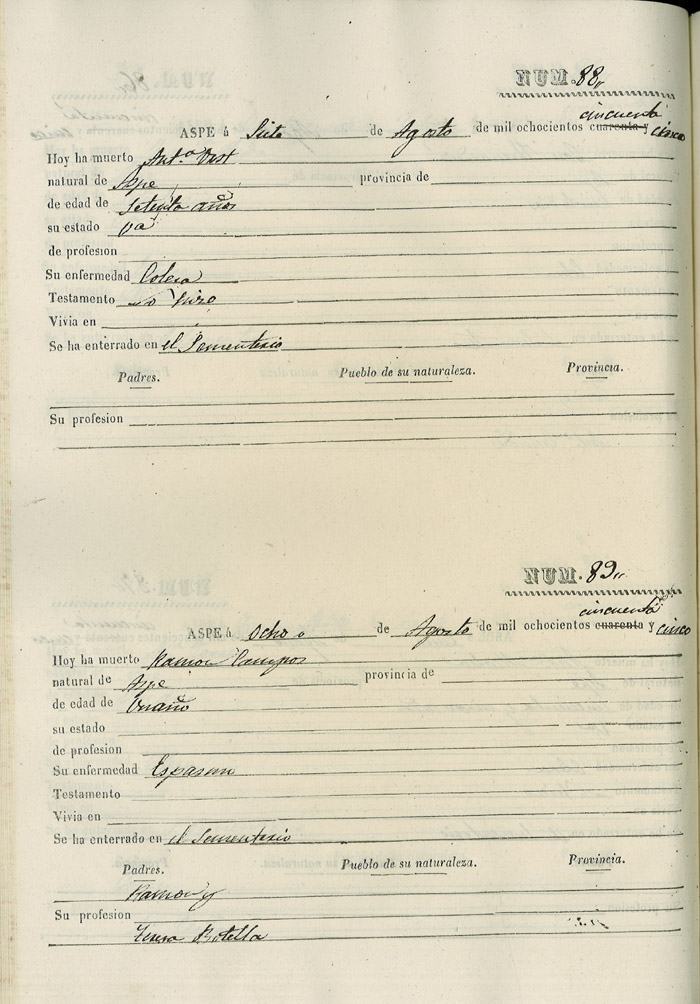 NUM. 88
cincuenta
ASPE á Siete de Agosto de mil ochocientos cuarenta y cinco
Hoy ha muerto Ant.ª
natural de Aspe provincia de
de edad de Setenta años
su estado Vª
de profesion
Su enfermedad Colera
Testamento no hizo
Vivia en
Se ha enterrado en el Sementerio
Padres. Pueblo de su naturaleza. Provincia.
Su profesion
NUM. 89
cincuenta
ASPE á Ocho de Agosto de mil ochocientos cuarenta y cinco
Hoy ha muerto Ramon Campos
natural de Aspe provincia de
de edad de Un año
su estado
de profesion
Su enfermedad Espasmo
Testamento
Vivia en
Se ha enterrado en el Sementerio
Padres. Pueblo de su naturaleza. Provincia.
Ramon y
Su profesion
Teresa Botella